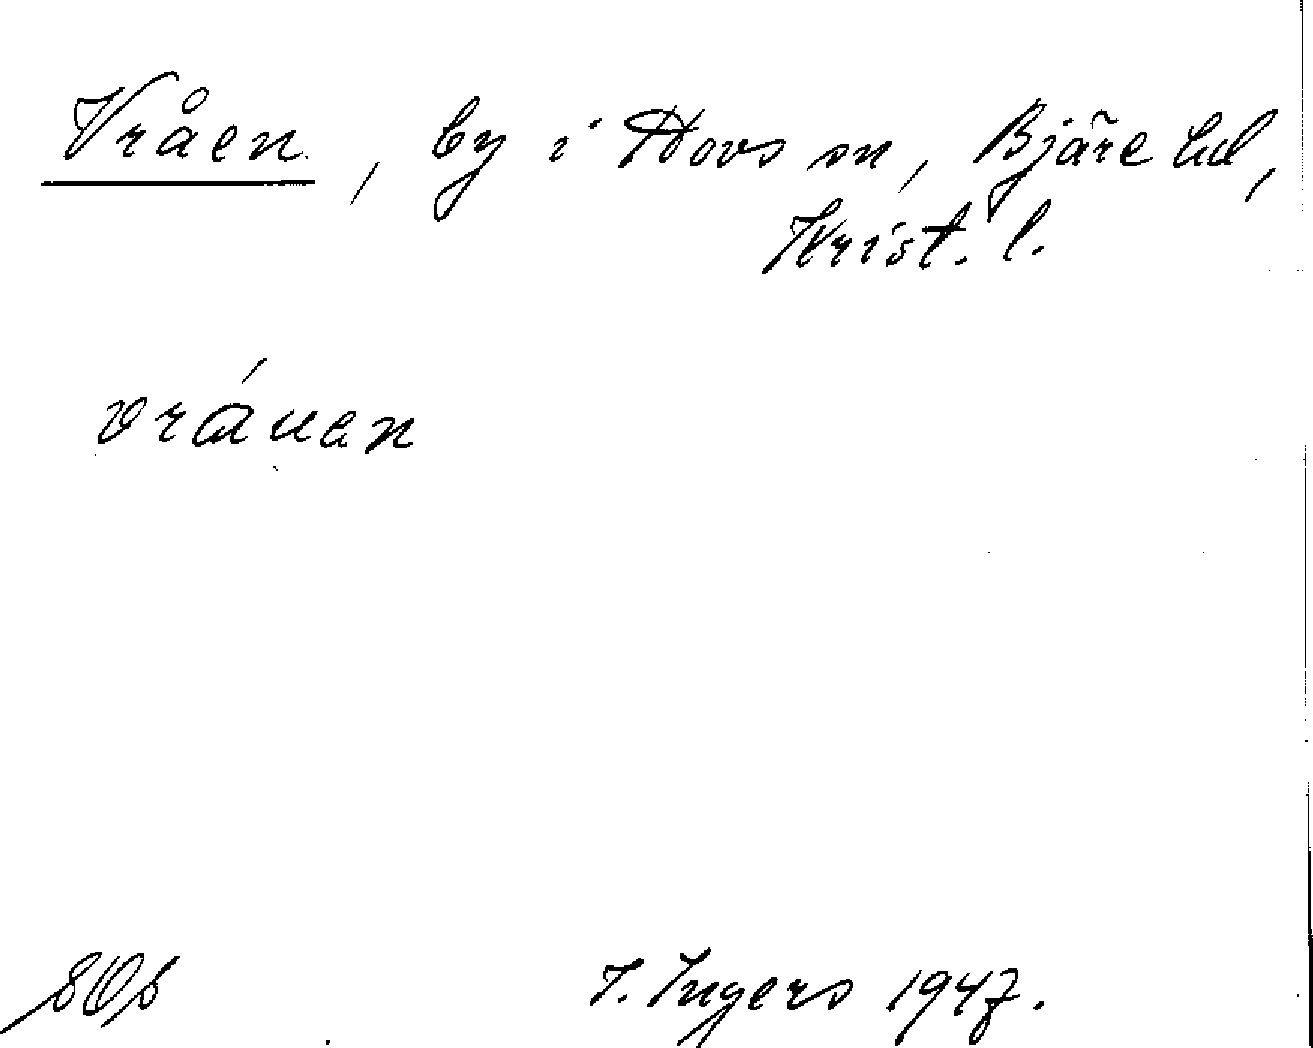 Vråen, by i Hovs sn, Bjäre hd,
Krist. l.
vráuen
SOS
I. Ingers 1947.